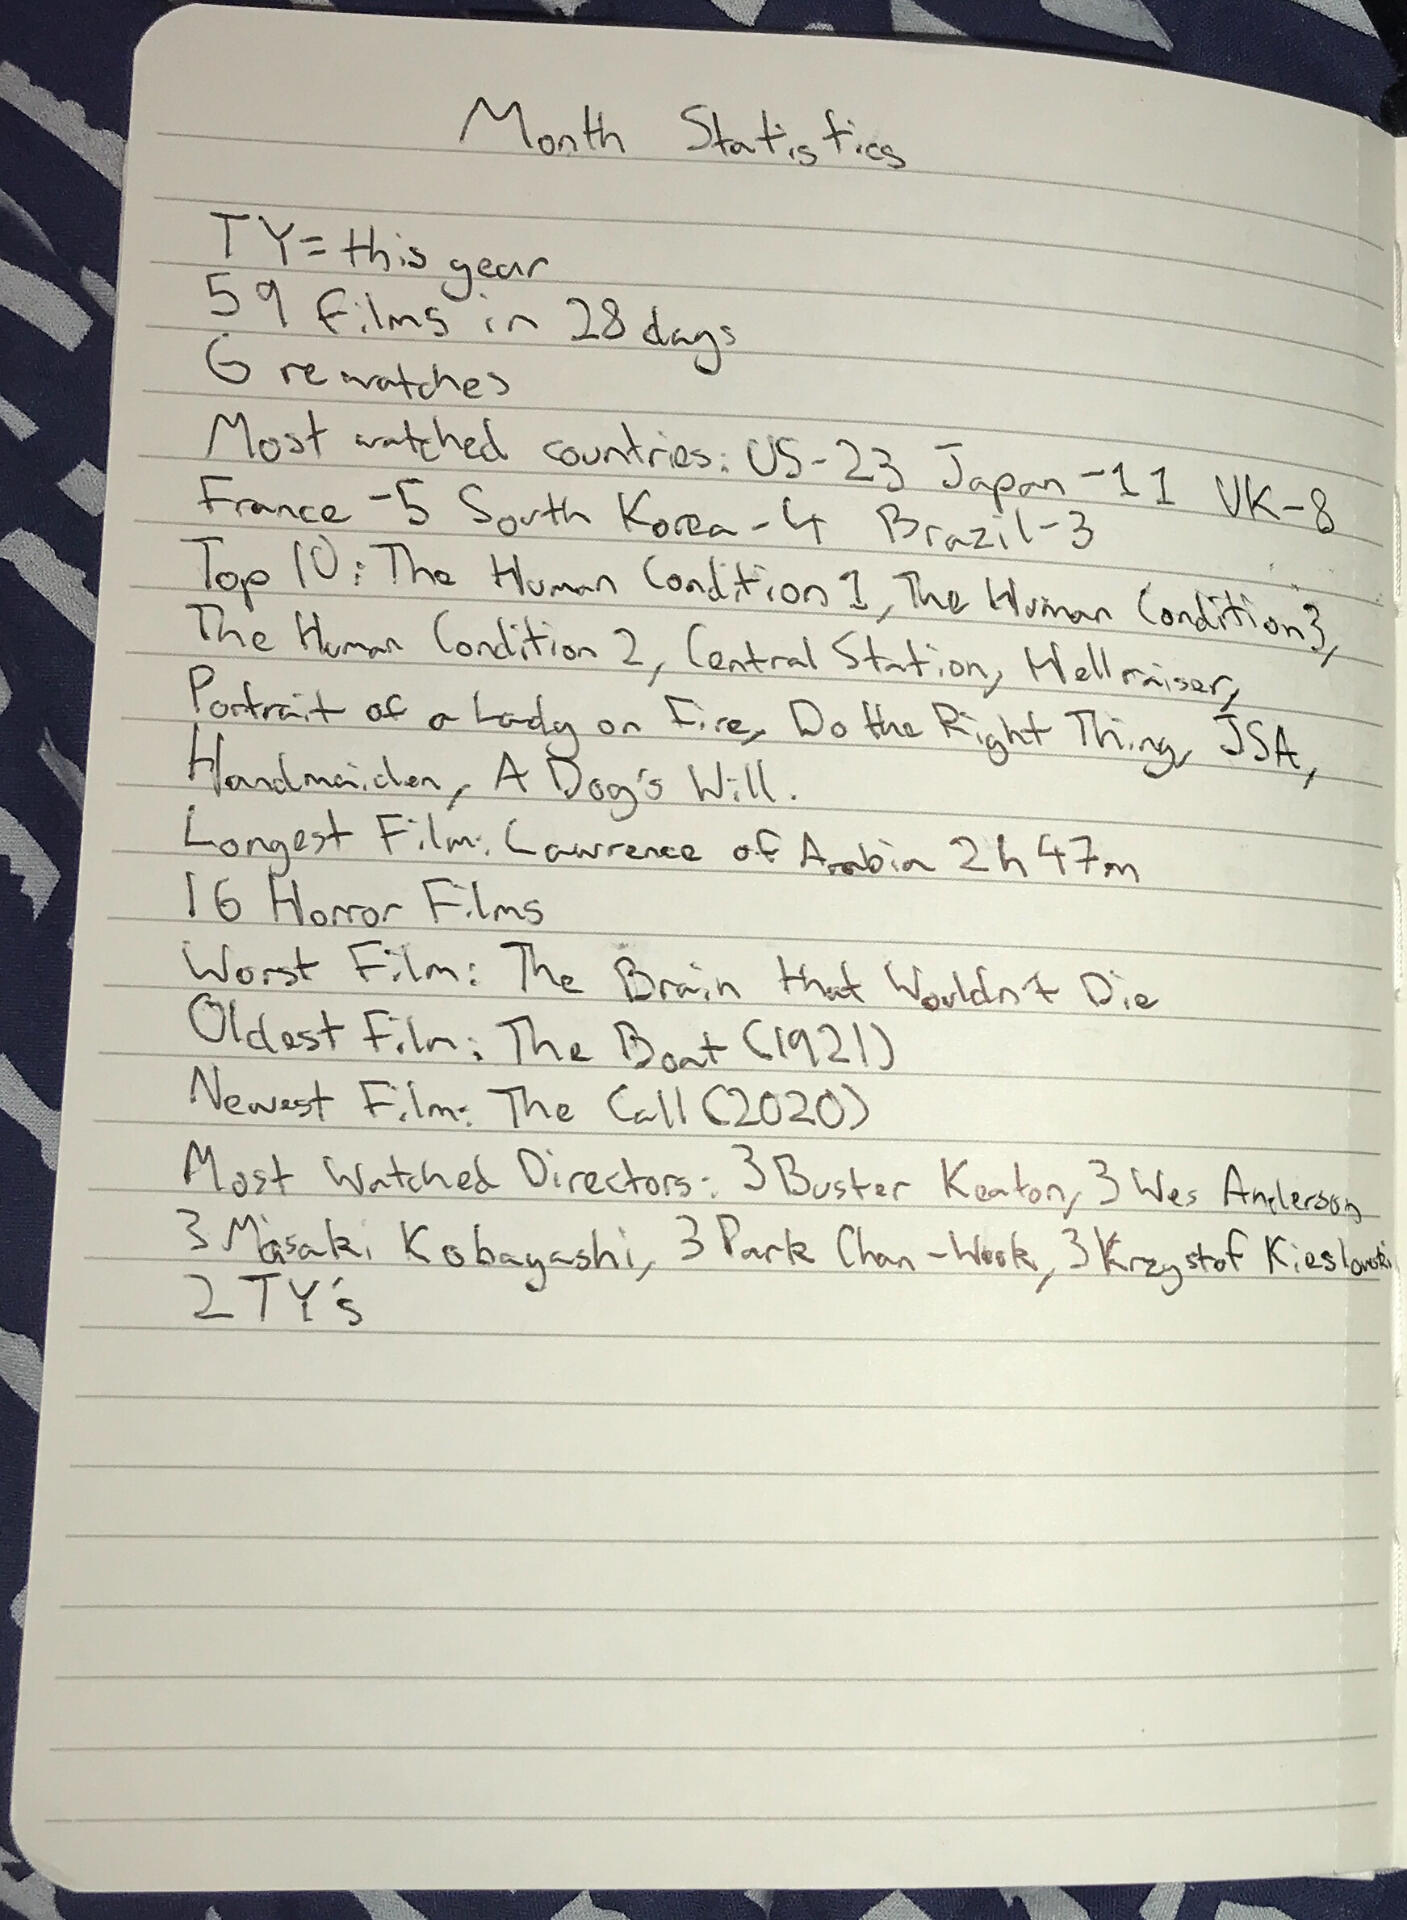 Month Statistics
TY= this year
59 films in 28 days
6 rewatches
Most watched countries: US-23 Japan-11 UK-8
France-5 South Korea-4 Brazil-3
Top 10: The Human Condition 1, The Human Condition 3,
The Human Condition 2, Central Station, Hellraiser,
Portrait of a Lady on Fire, Do the Right Thing, JSA,
Handmaiden, A Dog's Will.
Longest Film: Lawrence of Arabia 2h 47m
16 Horror Films
Worst Film: The Brain that Wouldn't Die
Oldest Film: The Boat (1921)
Newest Film: The Call (2020)
Most Watched Directors: 3 Buster Keaton, 3 Wes Anderson
3 Masaki Kobayashi, 3 Park Chan-Wook, 3 Krzystof Kieslowski
2 TY's